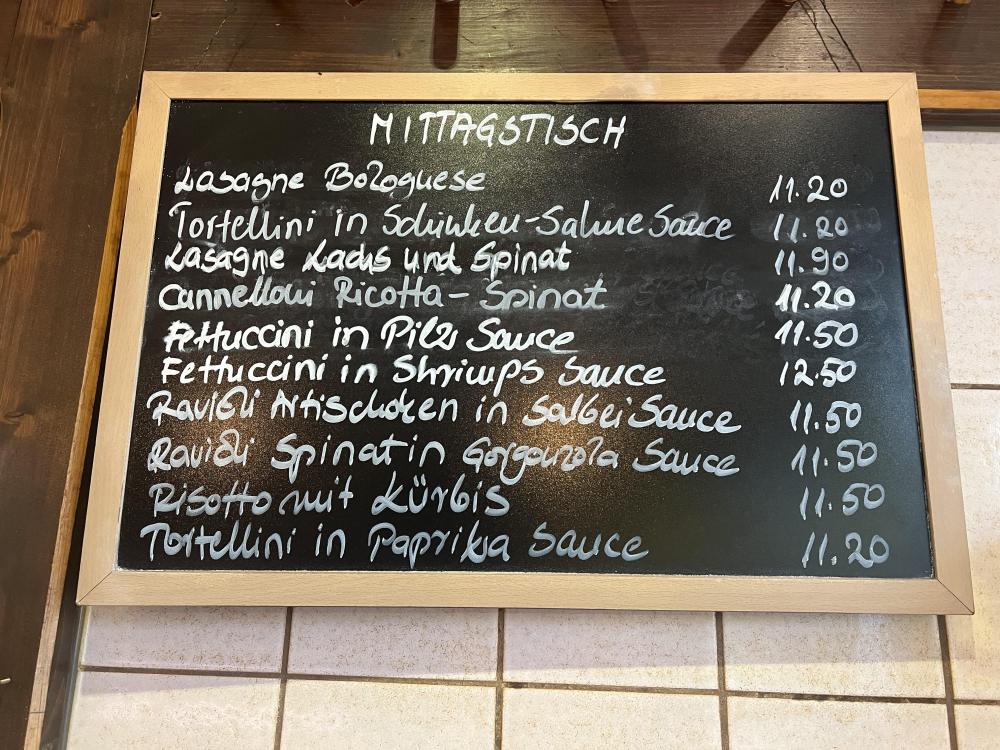 MITTAGSTISCH
Lasagne Bolognese 11.20
Tortellini in Schinken-Sahne Sauce 11.20
Lasagne Lachs und Spinat 11.90
Cannelloni Ricotta - Spinat 11.20
Fettuccini in Pilz Sauce 11.50
Fettuccini in Shrimps Sauce 12.50
Ravioli Artischoken in Salbei Sauce 11.50
Ravioli Spinat in Gorgonzola Sauce 11.50
Risotto mit Kürbis 11.50
Tortellini in Paprika Sauce 11.20